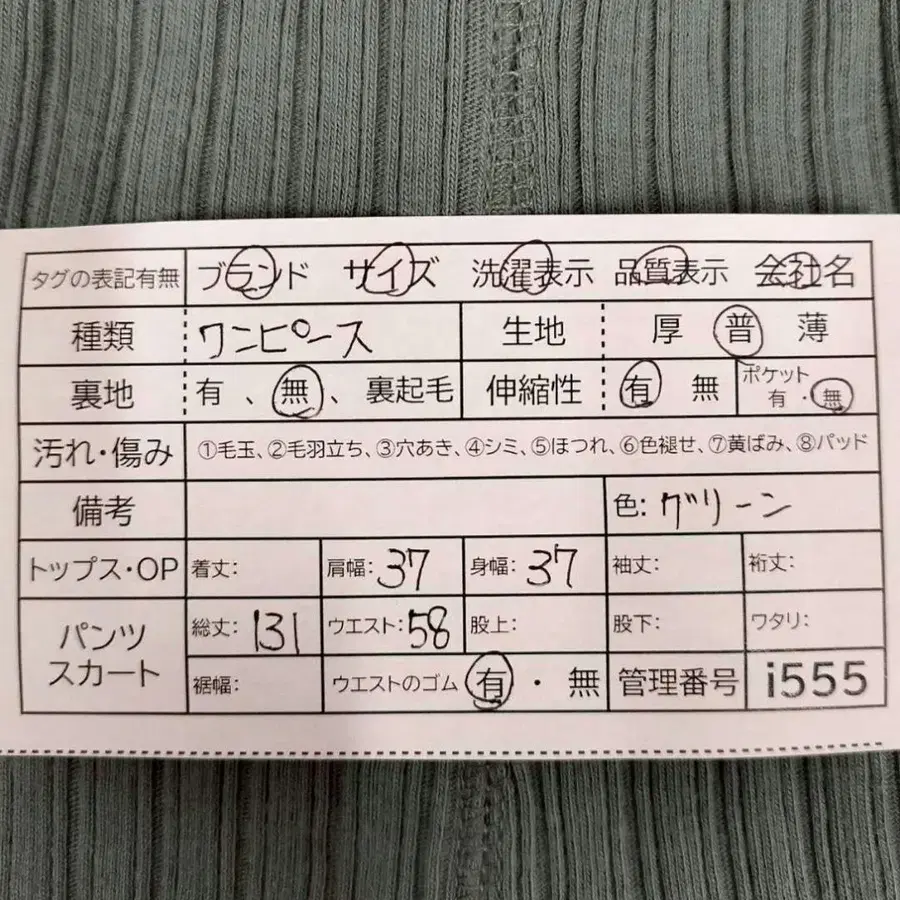 タグの表記有無 ブランド サイズ 洗濯表示 品質表示 会社名
種類 ワンピース 生地 厚 普 薄
裏地 有 、 無 、 裏起毛 伸縮性 有 無 ポケット 有 ・ 無
汚れ・傷み ①毛玉、②毛羽立ち、③穴あき、④シミ、⑤ほつれ、⑥色褪せ、⑦黄ばみ、⑧パッド
備考 色: グリーン
トップス・OP 着丈: 肩幅: 37 身幅: 37 袖丈: 裄丈:
パンツ スカート 総丈: 131 ウエスト: 58 股上: 股下: ワタリ:
裾幅: ウエストのゴム 有 ・ 無 管理番号 i555